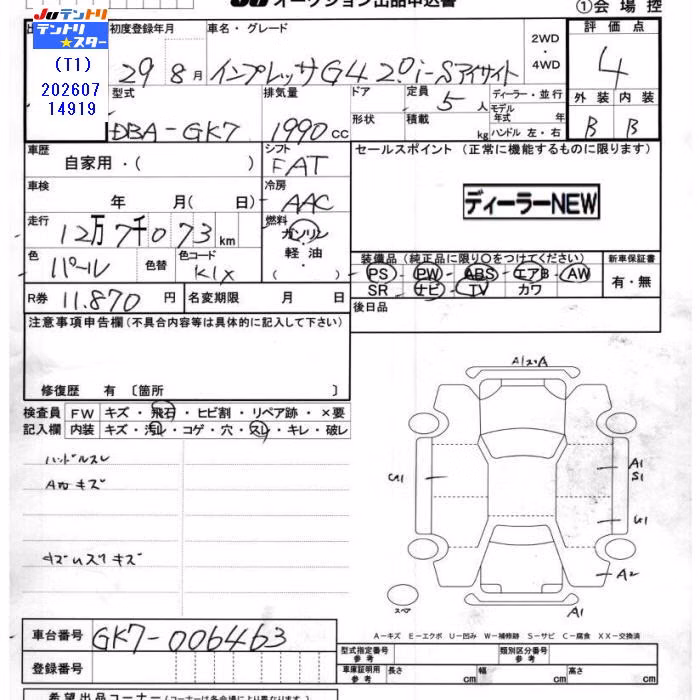 JU オークション出品申込書
①会場控
JUテントリ
テントリ★スター
(T1)
202607
14919
初度登録年月
車名・グレード
2WD
・
4WD
評価点
29 8月
インプレッサG4 2.0i-Sアイサイト
4
型式
排気量
ドア
定員
5人
ディーラー・並行
モデル年式 年
外装 内装
DBA-GK7
1990cc
形状
積載
kg
ハンドル 左・右
B B
車歴
自家用・( )
シフト
FAT
セールスポイント(正常に機能するものに限ります)
車検
年 月( 日)
冷房
AAC
ディーラーNEW
走行
12万7千073km
燃料
ガソリン
・
軽油
( )
色
パール
色替
色コード
K1X
装備品(純正品に限り○をつけてください)
新車保証書
PS PW ABS エアB AW
SR ナビ TV カワ
有・無
R券 11.870円
名変期限 月 日
後日品
注意事項申告欄(不具合内容等は具体的に記入して下さい)
修復歴 有〔箇所 〕
検査員
記入欄
FW キズ・飛石・ヒビ割・リペア跡・×要
内装 キズ・汚れ・コゲ・穴・スレ・キレ・破レ
ハンドルスレ
A1
U1
A1
S1
U1
A2
A1
スペア
A－キズ E－エクボ U－凹み W－補修跡 S－サビ C－腐食 XX－交換済
車台番号 GK7-006463
登録番号
型式指定番号
参考
類別区分番号
参考
車庫証明用
参考
長さ cm 幅 cm 高さ cm
希望出品コーナー(コーナーは各会場により異なります)